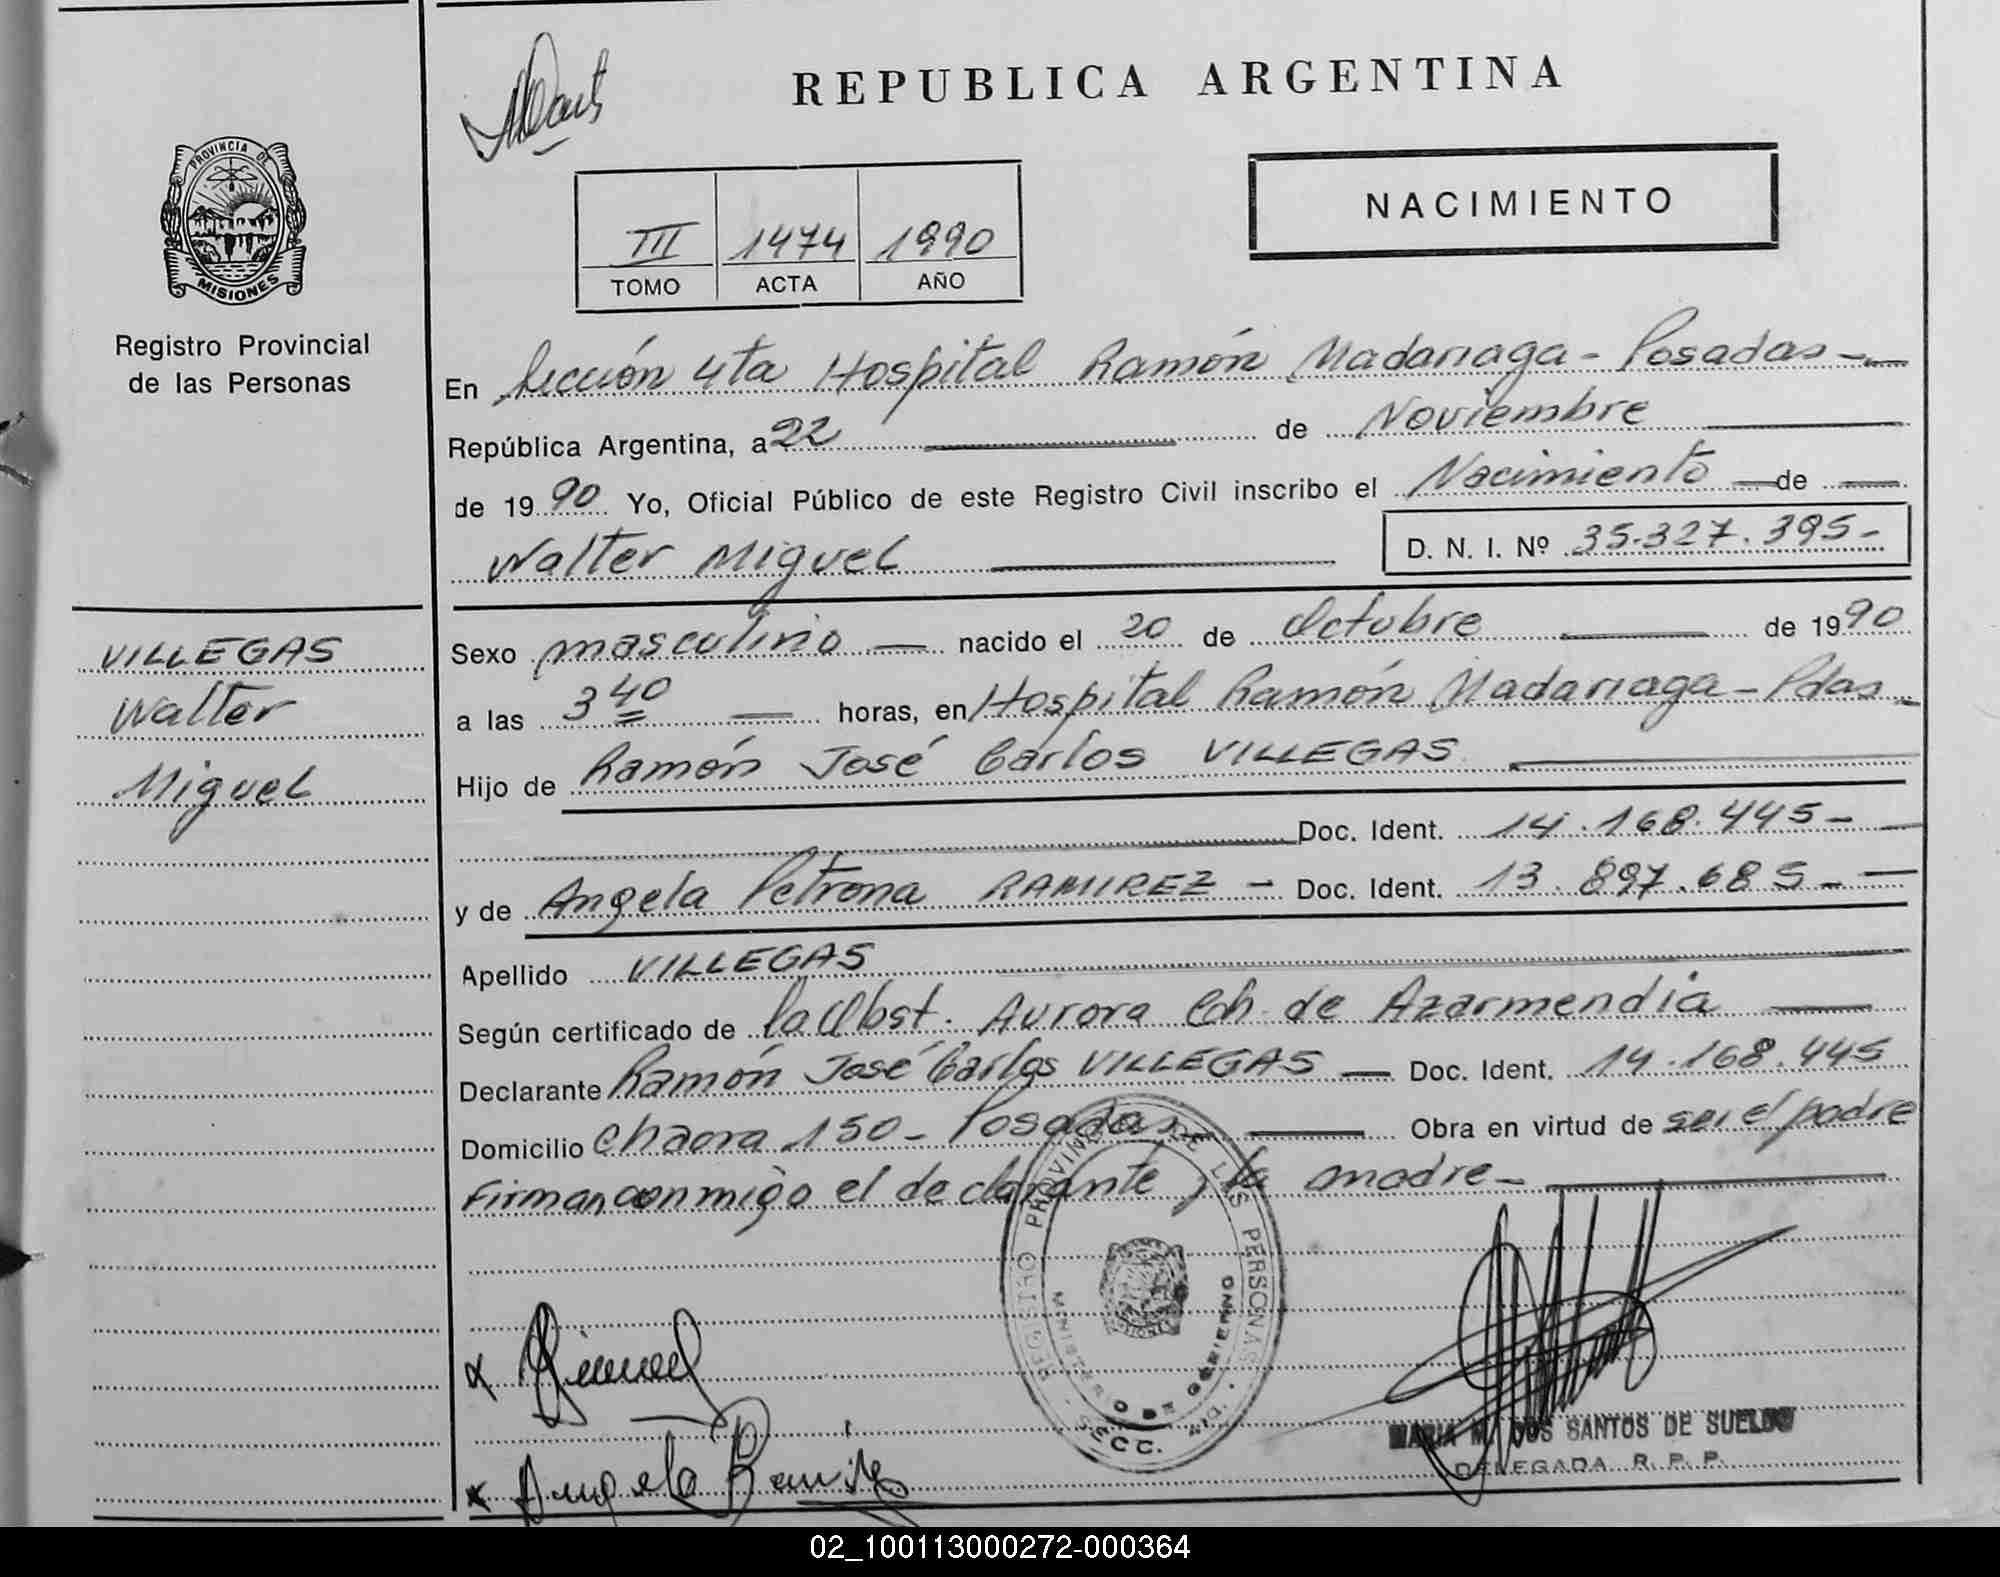 REPUBLICA ARGENTINA
PROVINCIA DE
MISIONES
Registro Provincial
de las Personas
NACIMIENTO
III 1474 1990
TOMO ACTA AÑO
En Sección 4ta Hospital Ramón Madariaga - Posadas -
República Argentina, a 22 de Noviembre
de 1990 Yo, Oficial Público de este Registro Civil inscribo el Nacimiento de
Walter Miguel
D. N. I. Nº 35.327.395-
VILLEGAS
Walter
Miguel
Sexo masculino nacido el 20 de Octubre de 1990
a las 3 40 horas, en Hospital Ramón Madariaga - Pdas
Hijo de Ramón José Carlos VILLEGAS
Doc. Ident. 14.168.445-
y de Angela Petrona RAMIREZ - Doc. Ident. 13.897.685-
Apellido VILLEGAS
Según certificado de la Obst. Aurora Ch. de Azarmendia
Declarante Ramón José Carlos VILLEGAS Doc. Ident. 14.168.445
Domicilio Chacra 150 - Posadas Obra en virtud de ser el padre
Firman conmigo el declarante y la madre -
REGISTRO PROVINCIAL DE LAS PERSONAS
MINISTERIO DE GOBIERNO
SECC. 4ta.
x
x Angela Ramirez
MARIA M. DOS SANTOS DE SUELDO
DELEGADA R. P. P.
02_100113000272-000364